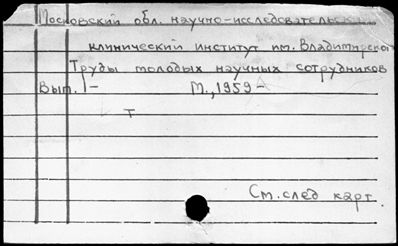 Московский обл. научно-исследовательский
клинический институт им. Владимирского
Труды молодых научных сотрудников
Вып. 1- М., 1959-
т
См. след карт.